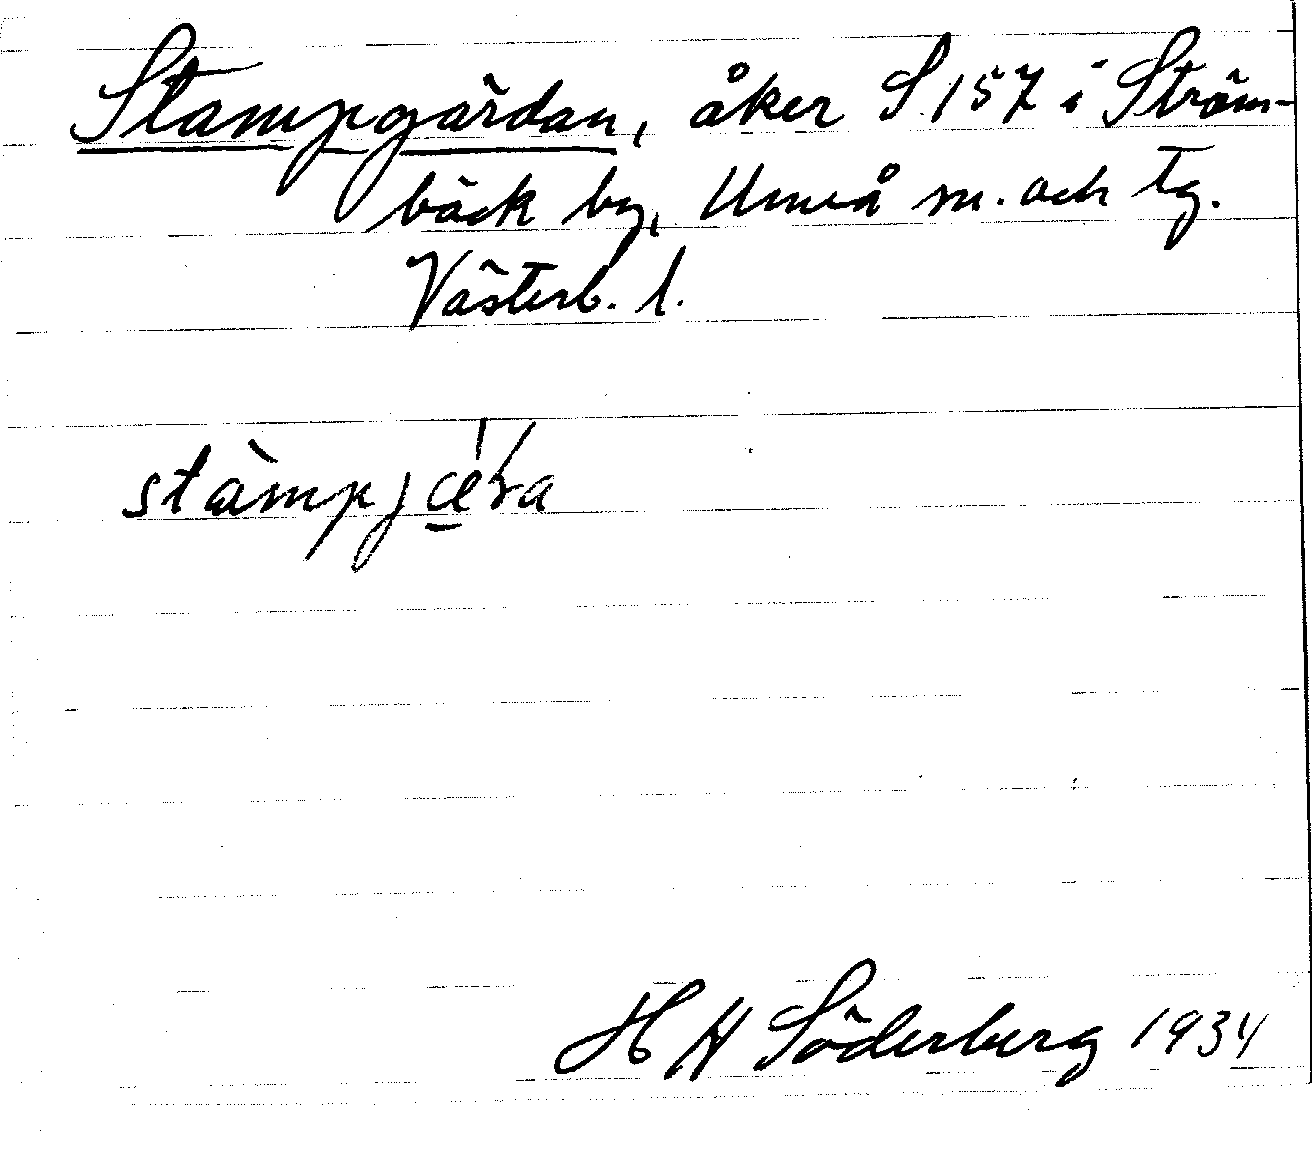 Stampgärdan, åker S 157 i Ström-
bäck by, Umeå sn. och tg.
Västerb. l.
stàmpjǽ̲ra
H H Söderberg 1934